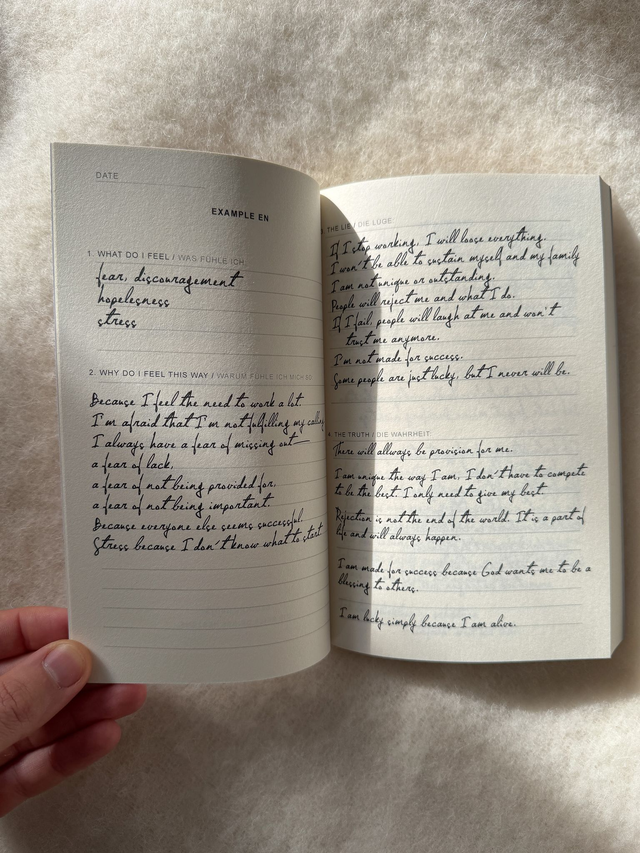 DATE
EXAMPLE EN
1. WHAT DO I FEEL / WAS FÜHLE ICH
fear, discouragement
hopelesness
stress
2. WHY DO I FEEL THIS WAY / WARUM FÜHLE ICH MICH SO
Because I feel the need to work a lot.
I'm afraid that I'm not fulfilling my calling
I always have a fear of missing out
a fear of lack,
a fear of not being provided for.
a fear of not being important.
Because everyone else seems successful.
Stress because I don't know what to start
3. THE LIE / DIE LÜGE
If I stop working, I will loose everything.
I won't be able to sustain myself and my family
I am not unique or outstanding.
People will reject me and what I do.
If I fail, people will laugh at me and won't
trust me anymore.
I'm not made for success.
Some people are just lucky, but I never will be.
4. THE TRUTH / DIE WAHRHEIT
There will allways be provision for me.
I am unique the way I am, I don't have to compete
to be the best. I only need to give my best.
Rejection is not the end of the world. It is a part of
life and will always happen.
I am made for success because God wants me to be a
blessing to others.
I am lucky simply because I am alive.